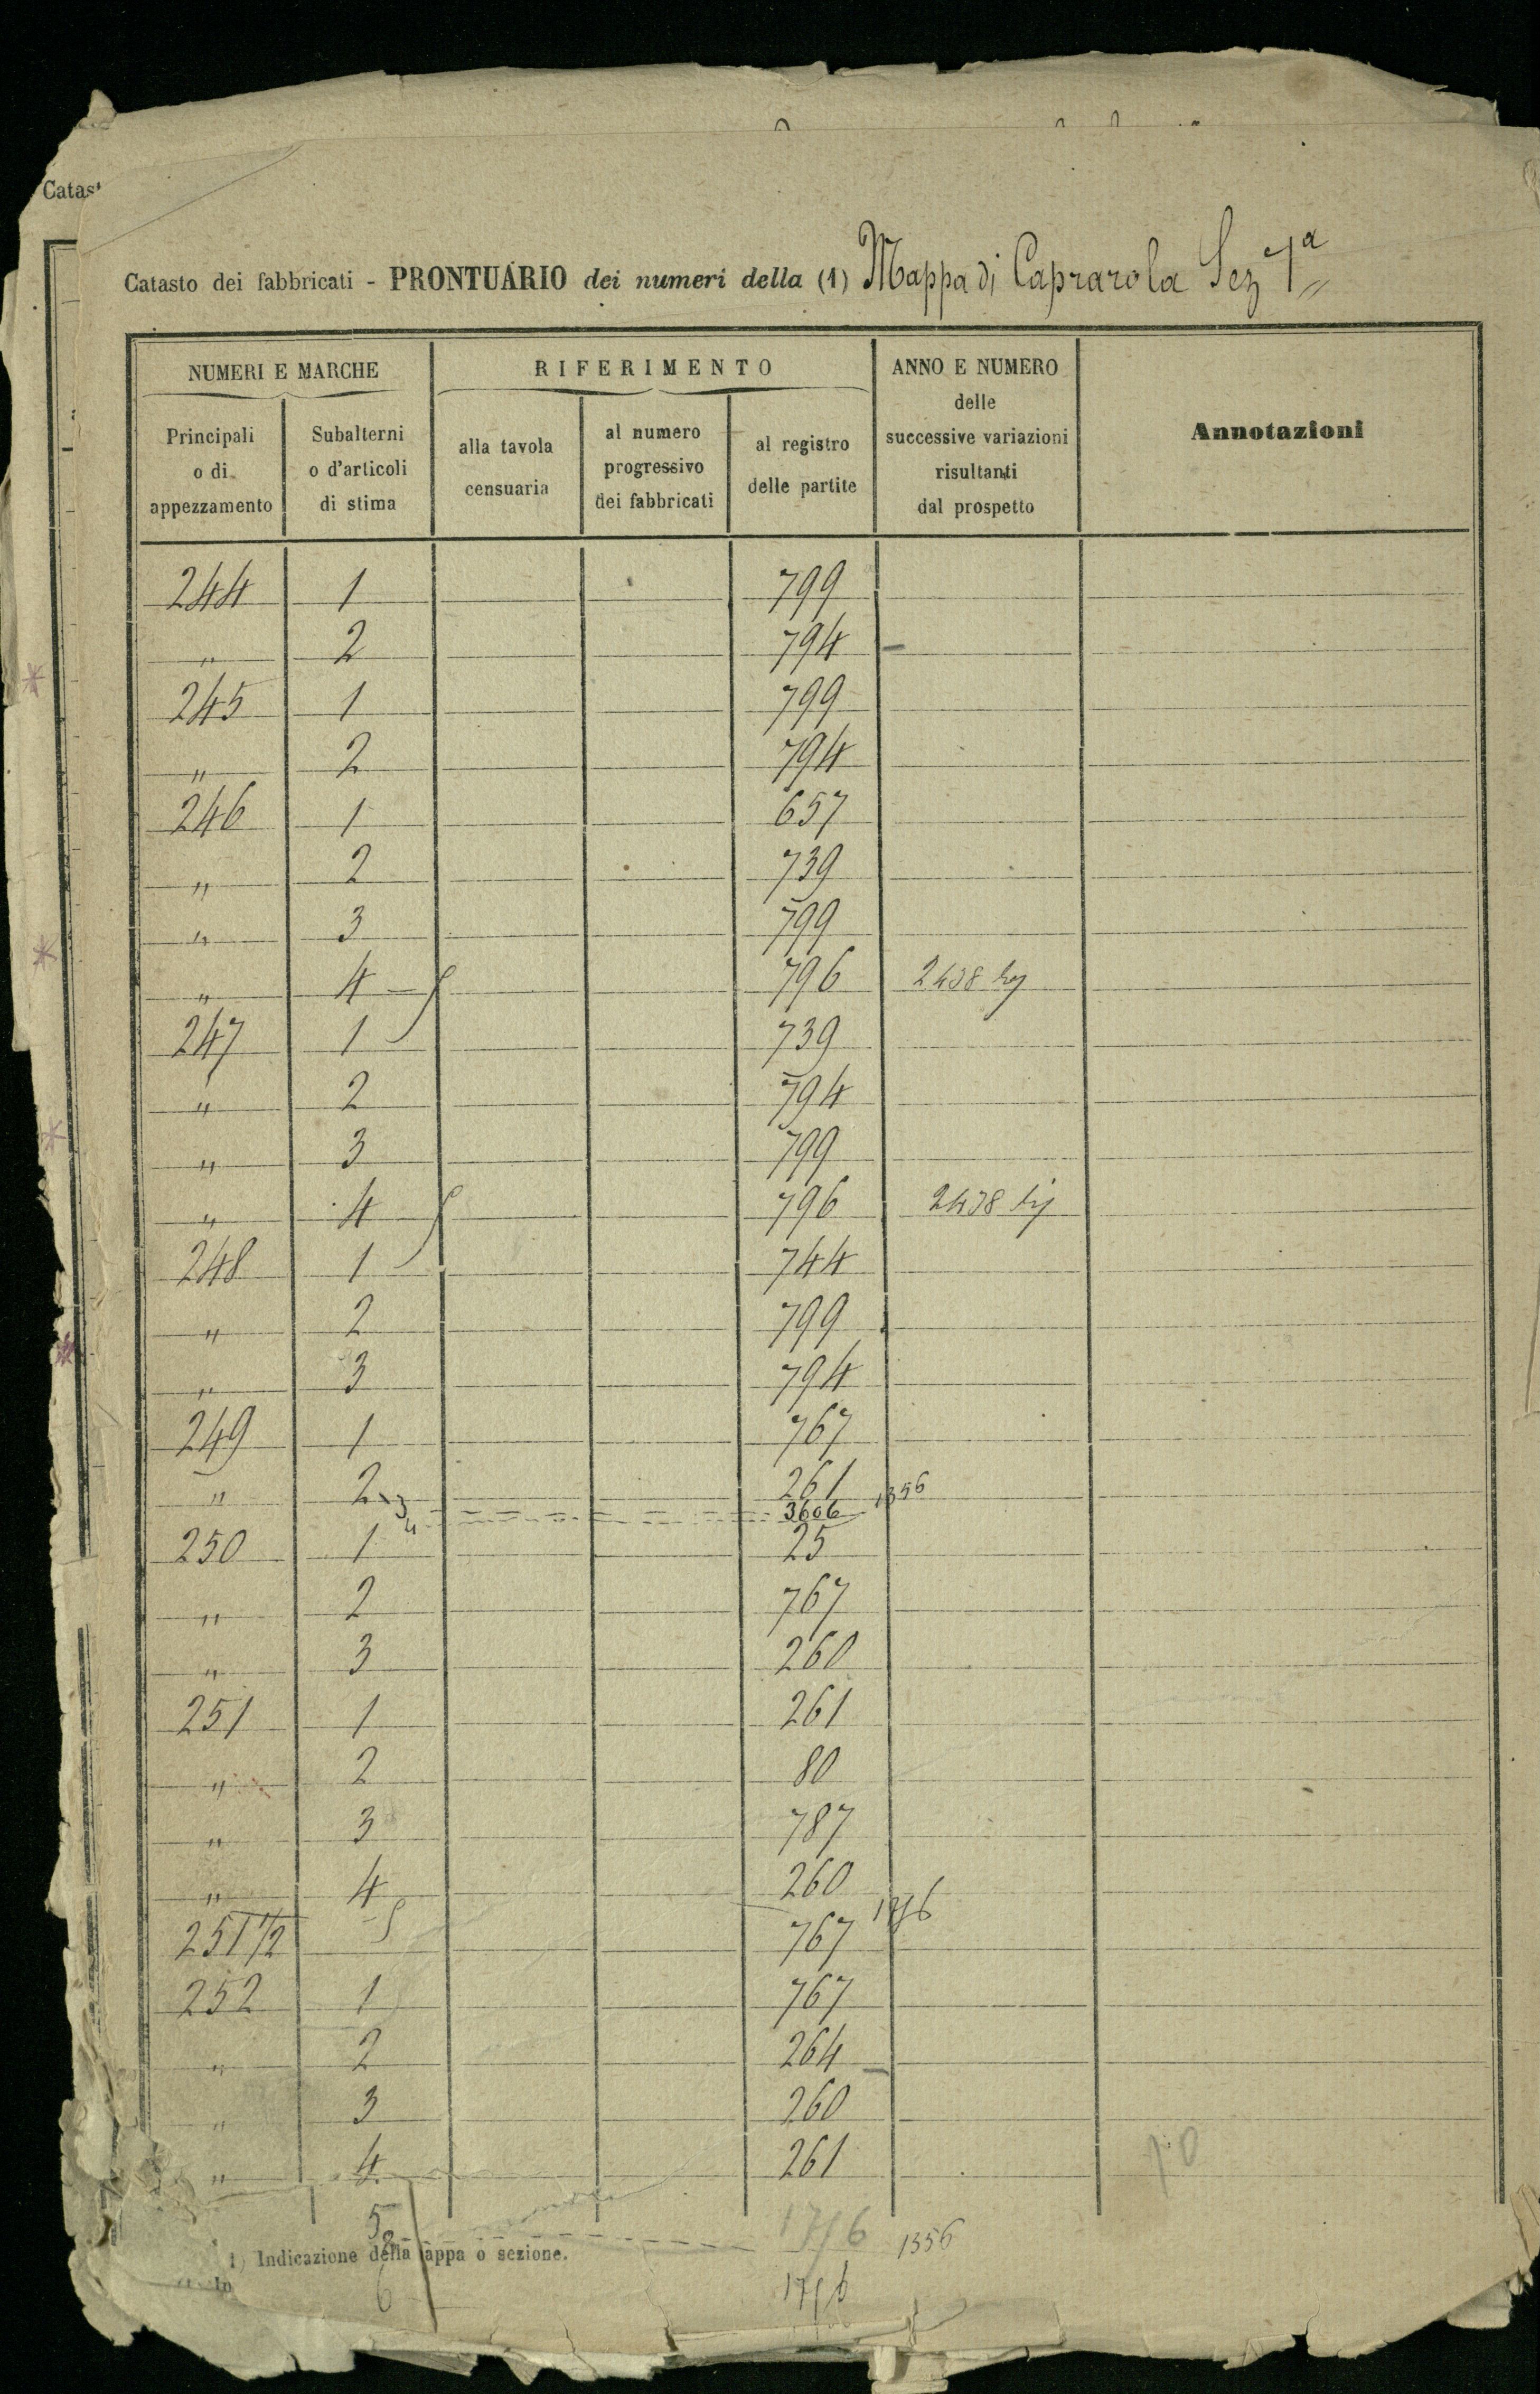 Catast
Catasto dei fabbricati - PRONTUARIO dei numeri della (1) Mappa di Caprarola Sez 1ª
NUMERI E MARCHE
RIFERIMENTO
ANNO E NUMERO
delle
successive variazioni
risultanti
dal prospetto
Annotazioni
Principali
o di
appezzamento
Subalterni
o d'articoli
di stima
alla tavola
censuaria
al numero
progressivo
dei fabbricati
al registro
delle partite
244 1 799
" 2 794
245 1 799
" 2 794
246 1 657
" 2 739
" 3 799
" 4 796 2438
247 1 739
" 2 794
" 3 799
" 4 796 2438
248 1 744
" 2 799
" 3 794
249 1 767
" 2 261 1356
3 3606
4
250 1 25
" 2 767
" 3 260
251 1 261
" 2 80
" 3 787
" 4 260
251 1/2 767
252 1 767
" 2 264
" 3 260
" 4 261
10
5 1356
1) Indicazione della appa o sezione.
6